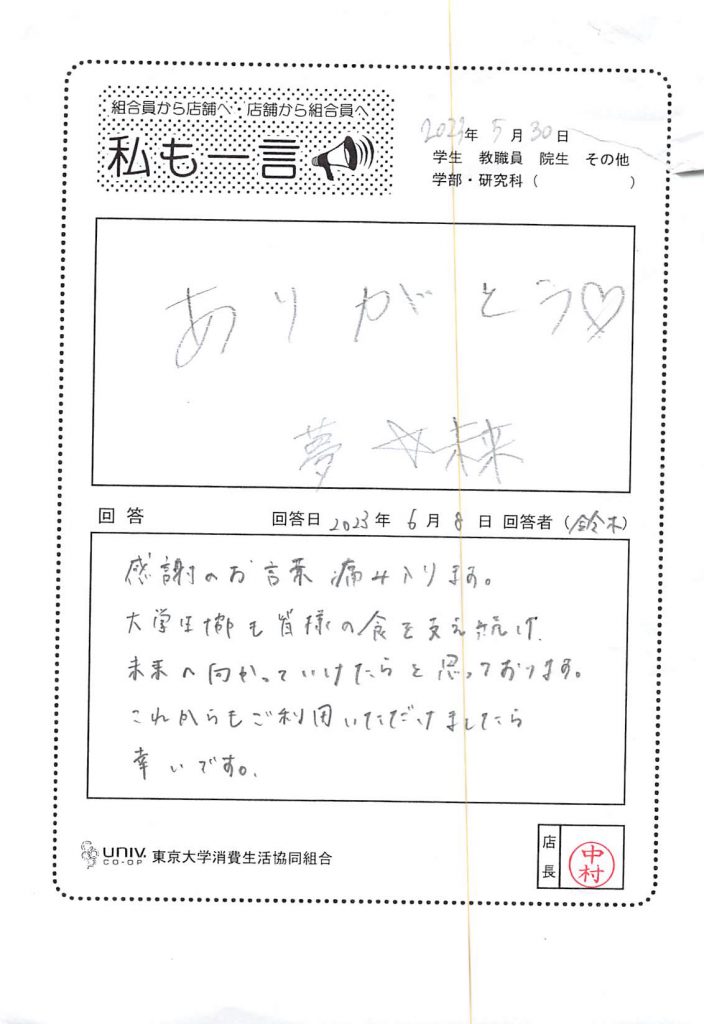 組合員から店舗へ・店舗から組合員へ
私も一言
2023年 5月 30日
学生 教職員 院生 その他
学部・研究科( )
ありがとう♡
夢☆未来
回答 回答日 2023年 6月 8日 回答者(鈴木)
感謝のお言葉痛み入ります。
大学生協も皆様の食を支え続け、
未来へ向かっていけたらと思っております。
これからもご利用いただけましたら
幸いです。
UNIV. CO-OP 東京大学消費生活協同組合
店長 中村